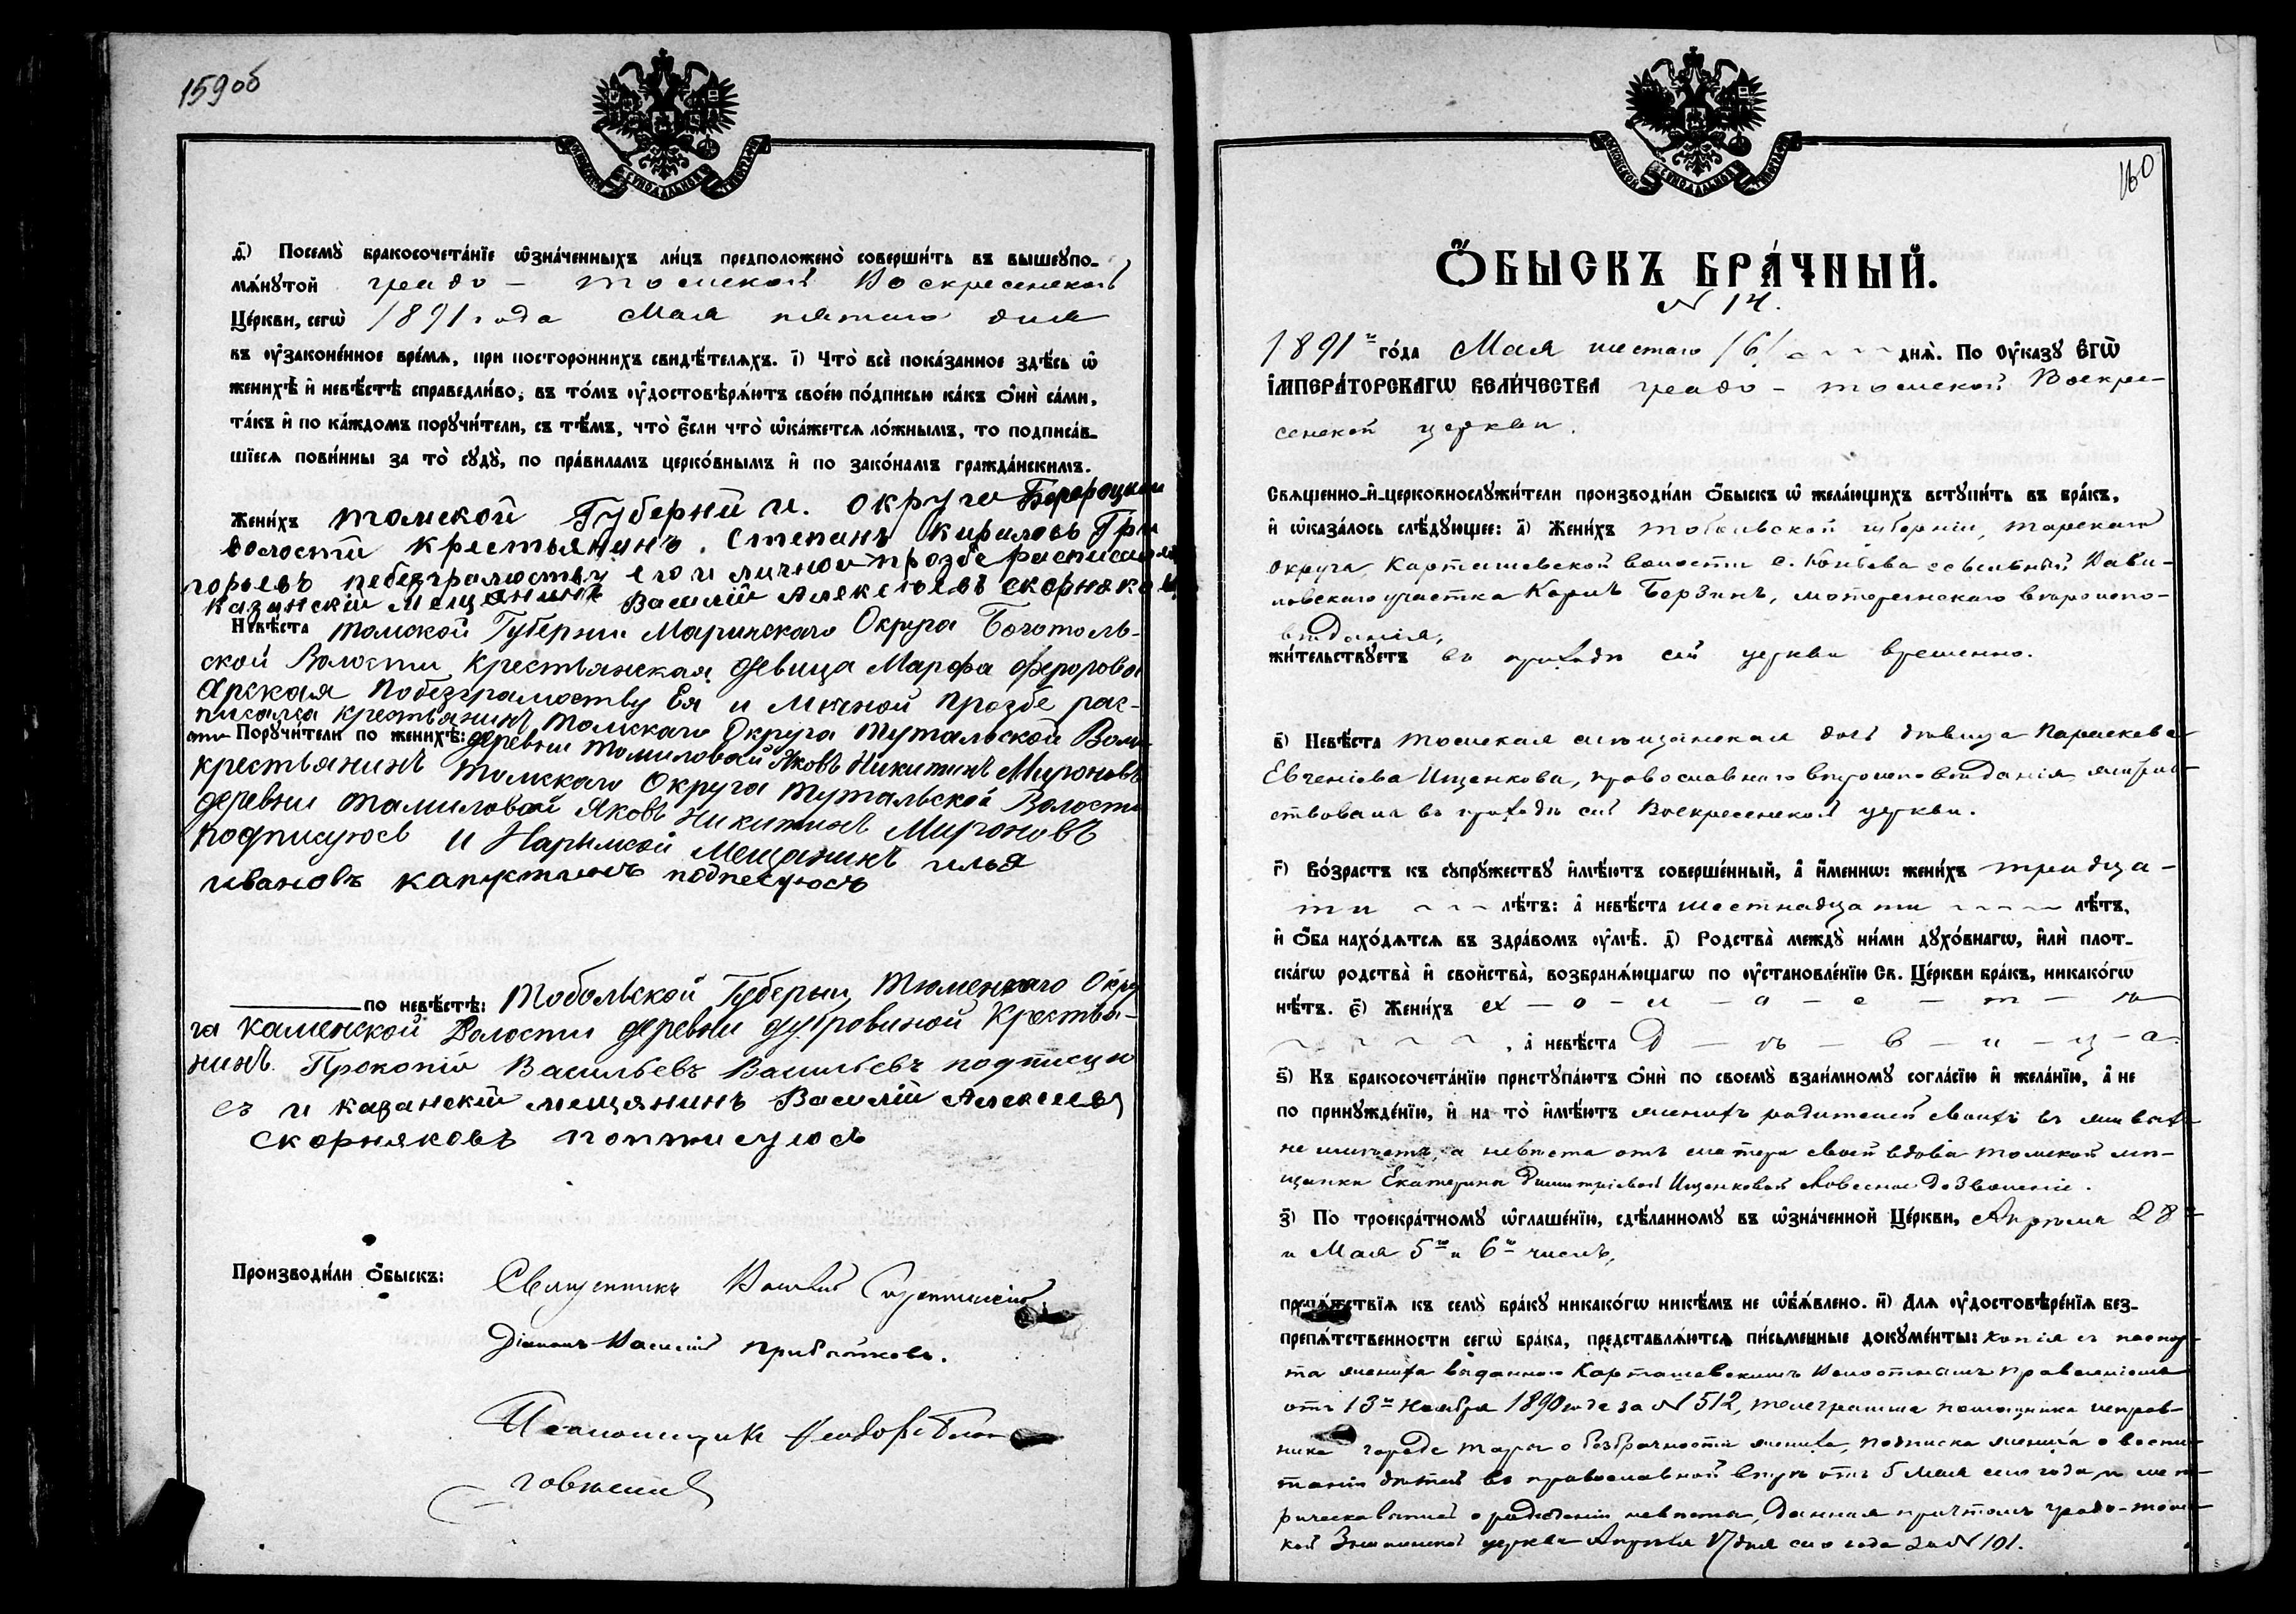 159об
д҃) Посемꙋ̀ бракосочета́нїе ѡ҆зна́ченныхъ ли́цъ предположено̀ соверши́ть въ вышеꙋпо-
мѧ́нꙋтой градо-Томской Воскресенской
Це́ркви, сегѡ̀ 1891 года Мая пятаго дня
въ ᲂу҆законе́нное вре́мѧ, при постороннихъ свидѣ́телѧхъ. і҃) Что̀ всѐ пока́занное здѣ́сь ѡ҆
женихѣ̀ и҆ невѣ́стѣ справедли́во, въ то́мъ ᲂу҆достовѣрѧ́ютъ свое́ю по́дписью ка́къ ѻ҆нѝ са́ми,
та́къ и҆ по ка́ждомъ порꙋчи́тели, съ тѣ́мъ, что̀ є҆́сли что̀ ѡ҆ка́жетсѧ ло́жнымъ, то подписа́в-
шїесѧ пови́нны за то̀ сꙋдꙋ̀, по пра́виламъ церко́внымъ и҆ по зако́намъ гражда́нскимъ.
Жени́хъ томской Губерніи. округи
волости крестьянинъ. Степанъ Кириловъ Гри
горьевъ небезграмоству его и личной прозбе расписался
казанскій Мещянинъ Василій Алексеевъ скорняковъ
Невѣ́ста томской Губерніи Маринскаго Округа Боготоль-
ской Волости Крестьянская девица Марфа Федорова
Арская побезграмоству Ея и личной прозбе рас-
писался крестьянинъ Томскаго Округа Тутальской Воло
сти Порꙋчи́тели по женихѣ̀: деревни Томиловай Яковъ Никитинъ Мироновъ
крестьянинъ томскаго Округа тутальской Волости
деревни тамиловой Яковъ Никитинъ Мироновъ
подписуюсь и Нарымской Мещанинъ илья
ивановъ капустинъ подпесуюсъ
по невѣ́стѣ: Тобольской Губерніи Тюменскаго Окру
га каменской Волости деревни дубровиной Крестья-
нинъ. Прокопій Васильевъ Васильевъ подписую
съ и казанскій мещянинъ Василій Алексеевъ
скорняковъ потписуюсь
Производи́ли ѻ҆́быскъ: Священникъ Василій Сиротинскій
Діаконъ Василій Прибытковъ.
Псаломщикъ Ѳеодоръ Благо
160
Ѻ҆́БЫСКЪ БРА́ЧНЫЙ.
N 14.
1891 го́да Мая шестаго /6/ днѧ̀. По ᲂу҆казꙋ Є҆ГѠ̀
І҆МПЕРА́ТОРСКАГѠ ВЕЛИ́ЧЕСТВА градо-Томской Воскре-
сенской церкви.
Свѧщенно-и҆-церковнослꙋжи́тели производи́ли ѻ҆́быскъ ѡ҆ жела́ющихъ встꙋпи́ть въ бра́къ,
и҆ ѡ҆каза́лось слѣ́дꙋющее: а҃) Жени́хъ Тобольской губерніи, Тарскаго
округа, Карташевской волости с. ссыльный Вави-
ловскаго участка Карлъ Берзинъ, лютеранскаго вѣроиспо-
вѣданія,
жи́тельствꙋетъ въ приходѣ сей церкви временно.
в҃) Невѣ́ста томская мѣщанская дочь дѣвица Параскева
Евгеніева Ищенкова, православнаго вѣроисповѣданія, житель-
ствовала въ приходѣ сей Воскресенской церкви.
г҃) Во́зрастъ къ сꙋпрꙋ́жествꙋ и҆мѣ́ютъ соверше́нный, а҆ и҆́меннѡ: жени́хъ тридца-
ти лѣ́тъ: а҆ невѣ́ста шестнадцати лѣ́тъ,
и҆ ѻ҆́ба нахо́дѧтсѧ въ здра́вомъ ᲂу҆мѣ̀. д҃) Родства̀ междꙋ̀ ни́ми дꙋхо́внагѡ, и҆лѝ плот-
ска́гѡ родства̀ и҆ свойства̀, возбранѧ́ющагѡ по ᲂу҆становле́нїю Св. Це́ркви бра́къ, никако́гѡ
нѣ́тъ. є҃) Жени́хъ х-о-л-о-с-т-ъ
, а҆ невѣ́ста д-ѣ-в-и-ц-а.
ѕ҃) Къ бракосочета́нїю пристꙋпа́ютъ ѻ҆нѝ по своемꙋ̀ взаи́мномꙋ согла́сїю и҆ жела́нїю, а҆ не
по принꙋжде́нїю, и҆ на то̀ и҆мѣ́ютъ женихъ родителей своихъ въ живыхъ
не имѣетъ, а невѣста отъ матери своей вдовы томской мѣ-
щанки Екатерины Димитріевой Ищенковой словесное дозволеніе.
з҃) По троекра́тномꙋ ѡ҆глаше́нїю, сдѣ́ланномꙋ въ ѡ҆зна́ченной Це́ркви, Апрѣля 28
и Мая 5го и 6го числъ,
препѧ́тствїѧ къ семꙋ̀ бра́кꙋ никако́гѡ никѣ́мъ не ѡ҆б̾ѧ́влено. и҃) Длѧ ᲂу҆достовѣре́нїѧ без-
препѧ́тственности сегѡ̀ бра́ка, представлѧ́ютсѧ пи́сьменные докꙋме́нты: копія съ паспор-
та жениха выданнаго Карташевскимъ Волостнымъ правленіемъ
отъ 13го Ноября 1890 года за N 512, телеграмма помощника исправ-
ника города Тары о безбрачности жениха, подписка жениха о воспи-
таніи дѣтей въ православной вѣрѣ отъ 5 Мая сего года и мет-
рическая выпись о рожденіи невѣсты, данная причтомъ градо-томс-
кой Знаменской церкви Апрѣля 17 дня сего года за N 101.